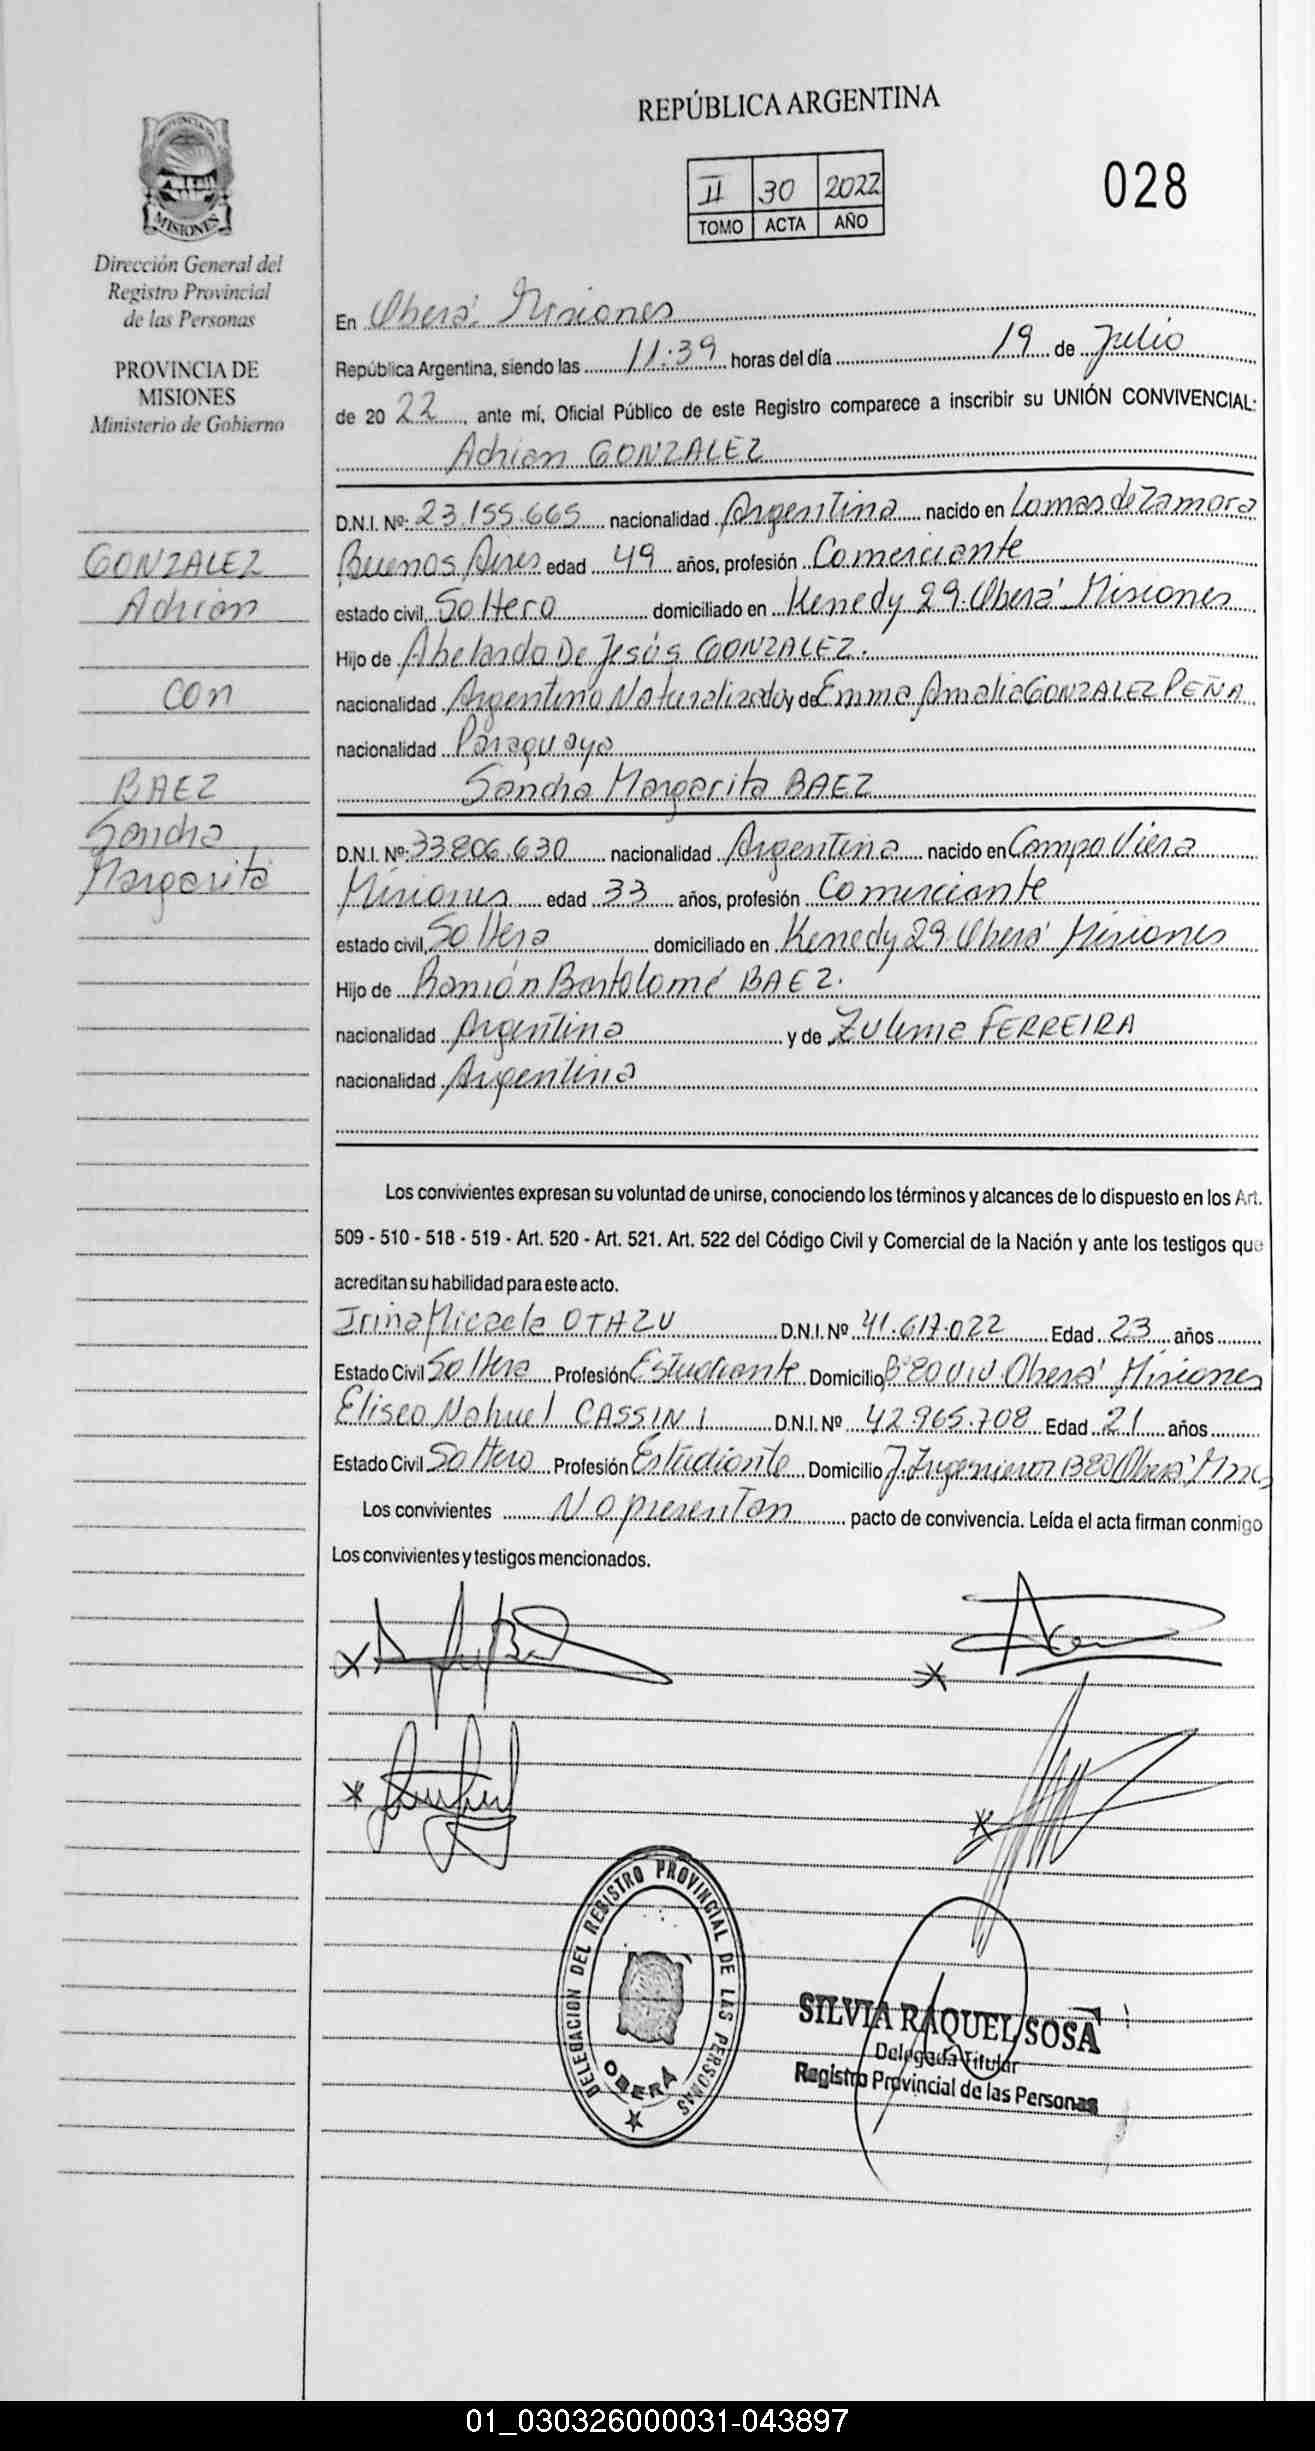 REPÚBLICA ARGENTINA
II 30 2022
TOMO ACTA AÑO
028
PROVINCIA DE
MISIONES
Dirección General del
Registro Provincial
de las Personas
PROVINCIA DE
MISIONES
Ministerio de Gobierno
GONZALEZ
Adrian
con
BAEZ
Sandra
Margarita
En Oberá Misiones
República Argentina, siendo las 11:39 horas del día 19 de Julio
de 20 22, ante mí, Oficial Público de este Registro comparece a inscribir su UNIÓN CONVIVENCIAL:
Adrian GONZALEZ
D.N.I. Nº 23.155.665 nacionalidad Argentina nacido en Lomas de Zamora
Buenos Aires edad 49 años, profesión Comerciante
estado civil, Soltero domiciliado en Kenedy 29. Oberá Misiones
Hijo de Abelardo De Jesús GONZALEZ.
nacionalidad Argentino Naturalizado y de Emma Amalia GONZALEZ PEÑA
nacionalidad Paraguaya
Sandra Margarita BAEZ
D.N.I. Nº 33.806.630 nacionalidad Argentina nacido en Campo Viera
Misiones edad 33 años, profesión Comerciante
estado civil, Soltera domiciliado en Kenedy 29. Oberá Misiones
Hijo de Ramón Bartolomé BAEZ.
nacionalidad Argentina y de Zulema FERREIRA
nacionalidad Argentina
Los convivientes expresan su voluntad de unirse, conociendo los términos y alcances de lo dispuesto en los Art.
509 - 510 - 518 - 519 - Art. 520 - Art. 521. Art. 522 del Código Civil y Comercial de la Nación y ante los testigos que
acreditan su habilidad para este acto.
Irina Micaela OTAZU D.N.I. Nº 41.617.022 Edad 23 años
Estado Civil Soltera Profesión Estudiante Domicilio Bº 80 viv Oberá Misiones
Eliseo Nahuel CASSINI D.N.I. Nº 42.965.708 Edad 21 años
Estado Civil Soltero Profesión Estudiante Domicilio J. Ingenieros 1380 Oberá Mnes
Los convivientes No presentan pacto de convivencia. Leída el acta firman conmigo
Los convivientes y testigos mencionados.
DELEGACION DEL REGISTRO PROVINCIAL DE LAS PERSONAS
OBERA
SILVIA RAQUEL SOSA
Delegada Titular
Registro Provincial de las Personas
01_030326000031-043897